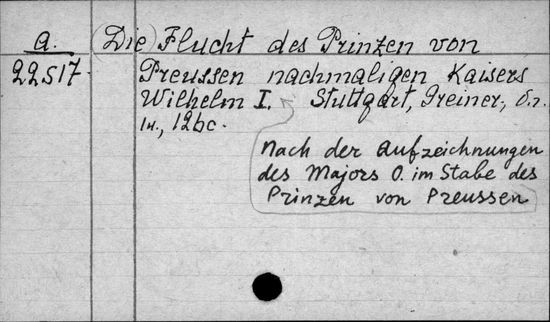 a. (Die) Flucht des Prinzen von
22517. Preussen nachmaligen Kaisers
Wilhelm I. Stuttgart, Greiner, o.J.
14., 126c.
Nach der Aufzeichnungen
des Majors O. im Stabe des
Prinzen von Preussen